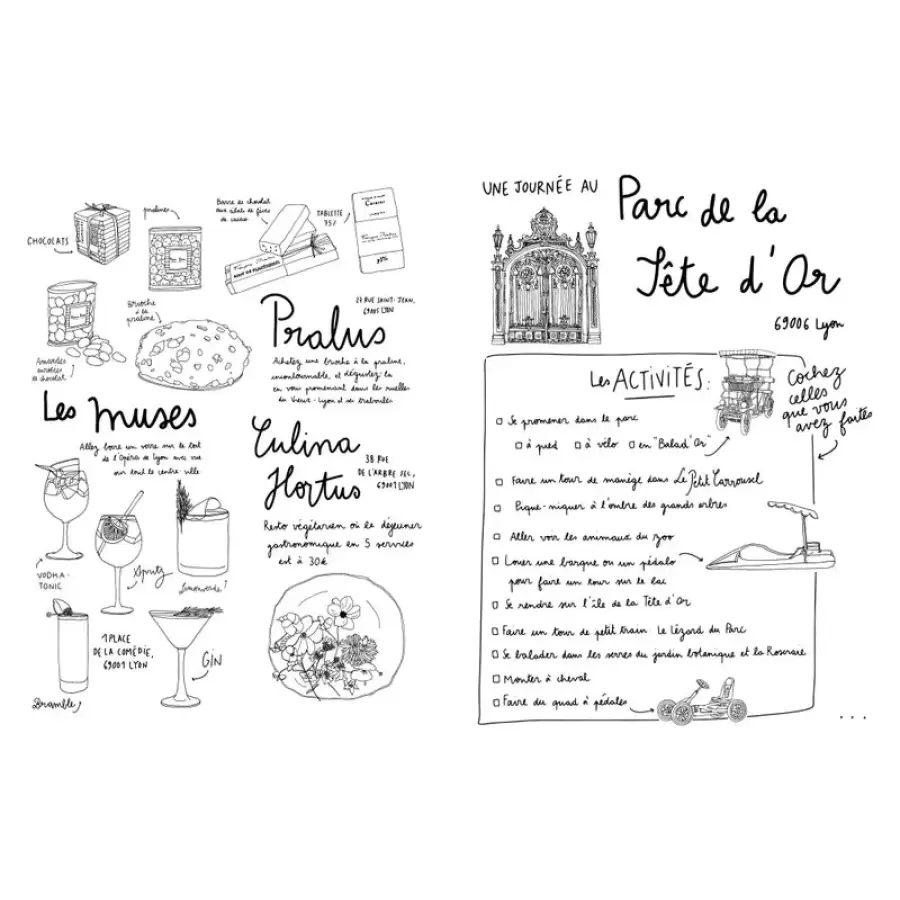 CHOCOLATS
pralines
Barre de chocolat
aux éclats de fèves
de cacao
TABLETTE
75%
75%
Brioche
à la
praline
Amandes
enrobées
de chocolat
Pralus
27 RUE SAINT-JEAN,
69005 LYON
Achetez une brioche à la praline,
incontournable, et dégustez-la
en vous promenant dans les ruelles
du Vieux-Lyon et ses traboules
Les Muses
Allez boire un verre sur le toit
de l'Opéra de Lyon avec vue
sur tout le centre-ville
VODKA-
TONIC
Spritz
Limonverde
Bramble
1 PLACE
DE LA COMÉDIE,
69001 LYON
GIN
Culina
Hortus
38 RUE
DE L'ARBRE SEC,
69001 LYON
Resto végétarien où le déjeuner
gastronomique en 5 services
est à 30€
UNE JOURNÉE AU
Parc de la
Tête d'Or
69006 Lyon
Les ACTIVITÉS:
Cochez
celles
que vous
avez faites
Se promener dans le parc
à pied à vélo en "Balad'Or"
Faire un tour de manège dans Le Petit Carrousel
Pique-niquer à l'ombre des grands arbres
Aller voir les animaux du zoo
Louer une barque ou un pédalo
pour faire un tour sur le lac
Se rendre sur l'île de la Tête d'Or
Faire un tour de petit train: Le Lézard du Parc
Se balader dans les serres du jardin botanique et la Roseraie
Monter à cheval
Faire du quad à pédales
...